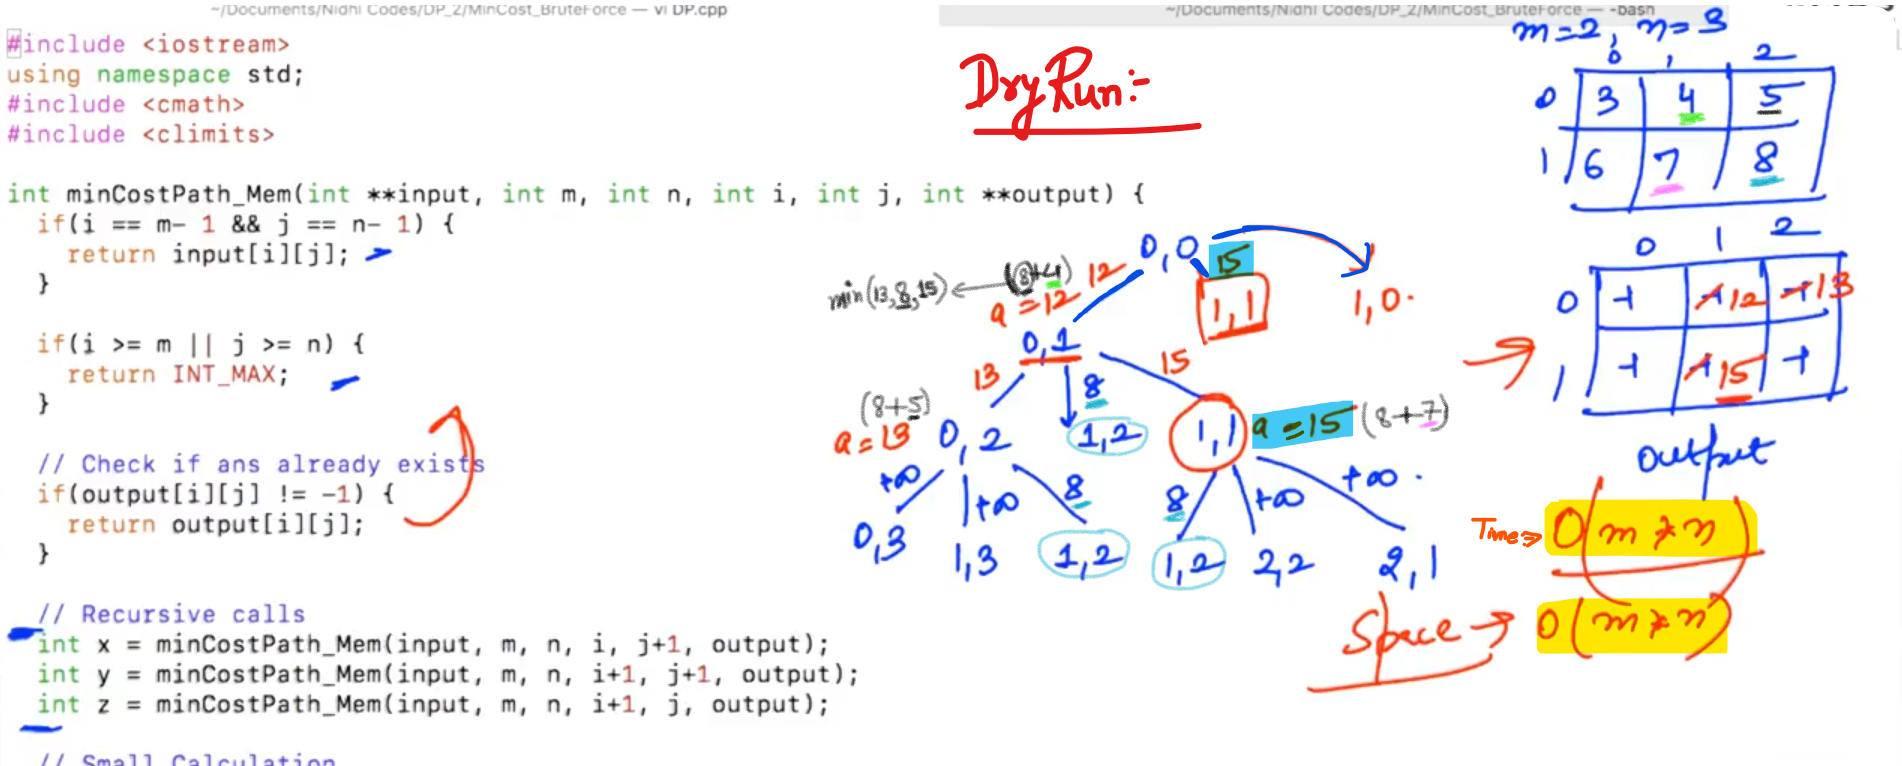 ~/Documents/Nidhi Codes/DP_2/MinCost_BruteForce — vi DP.cpp
~/Documents/Nidhi Codes/DP_2/MinCost_BruteForce — -bash
#include <iostream>
using namespace std;
#include <cmath>
#include <climits>
int minCostPath_Mem(int **input, int m, int n, int i, int j, int **output) {
if(i == m- 1 && j == n- 1) {
return input[i][j];
}
if(i >= m || j >= n) {
return INT_MAX;
}
// Check if ans already exists
if(output[i][j] != -1) {
return output[i][j];
}
// Recursive calls
int x = minCostPath_Mem(input, m, n, i, j+1, output);
int y = minCostPath_Mem(input, m, n, i+1, j+1, output);
int z = minCostPath_Mem(input, m, n, i+1, j, output);
// Small Calculation
Dry Run:-
0,0 15
min(13,8,15) (8+4) 12
a=12
1,1
1,0.
0,1
13 8 15
(8+5)
a=13 0,2 1,2 1,1 a=15 (8+7)
+∞ +∞ 8 8 +∞ +∞.
0,3 1,3 1,2 1,2 2,2 2,1
m=2, n=3
0 1 2
0 3 4 5
1 6 7 8
0 1 2
0 -1 -1 12 -1 13
1 -1 -1 15 -1
output
Time⇒ O(m*n)
Space → O(m*n)